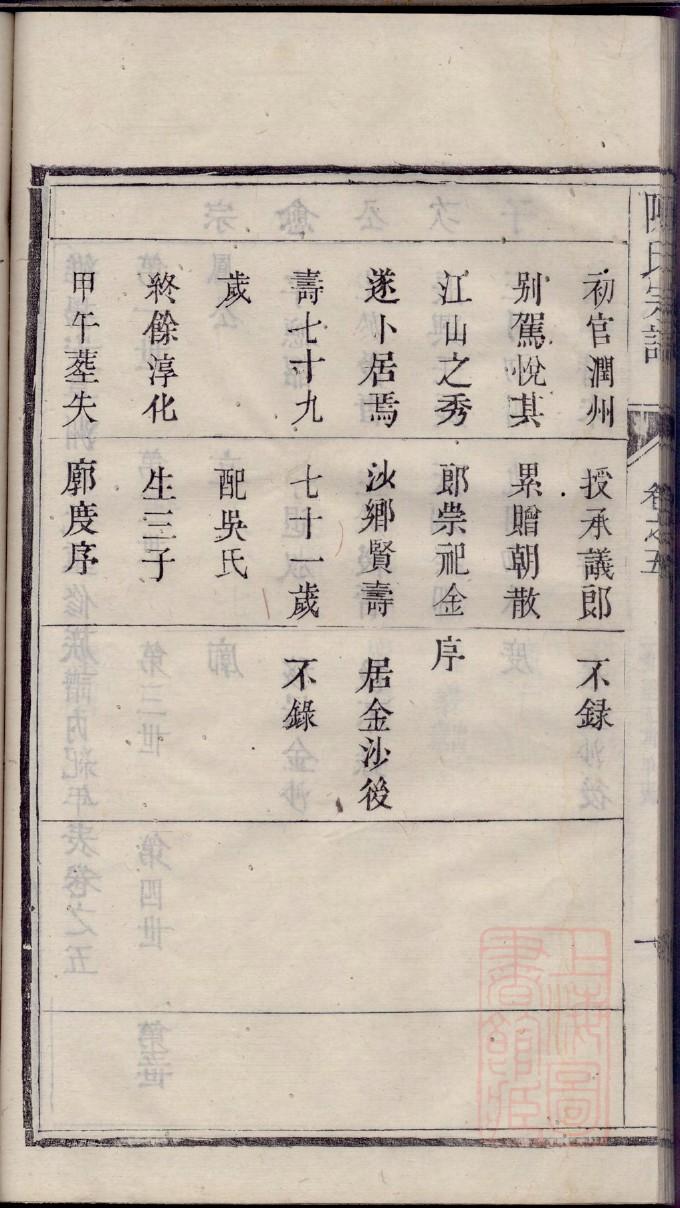 陳氏宗譜
卷之五
一
初官潤州
別駕悅其
江山之秀
遂卜居焉
壽七十九
歲
終餘淳化
甲午塟失
授承議郎
累贈朝散
郎崇祀金
沙鄉賢壽
七十一歲
配吳氏
生三子
廓度序
不録
序
居金沙後
不錄
上海圖
書館藏